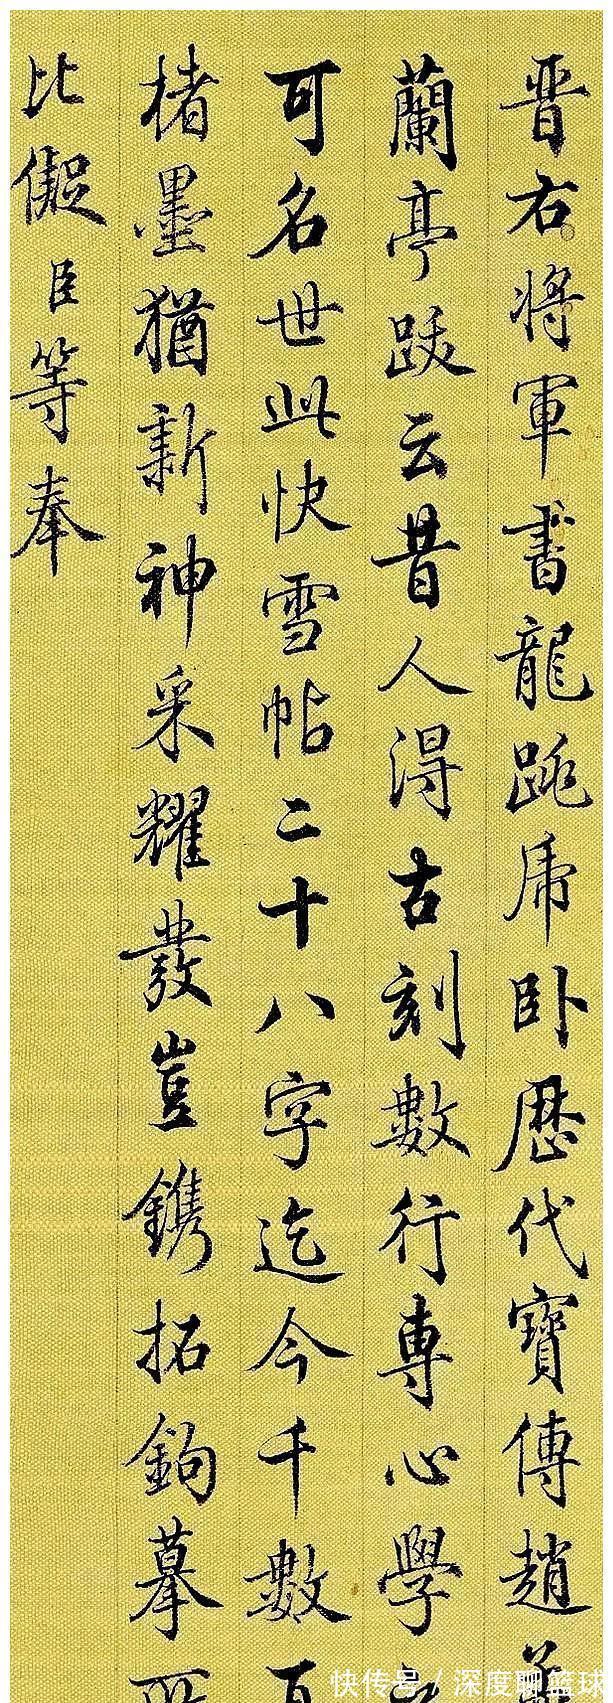 晋右將軍書龍跳虎卧歷代寶傳趙孟
蘭亭跋云昔人得古刻數行專心學
可名世此快雪帖二十八字迄今千數百
楮墨猶新神采耀發豈鐫拓鉤摹所
比儗臣等奉
快传号/深度聊篮球